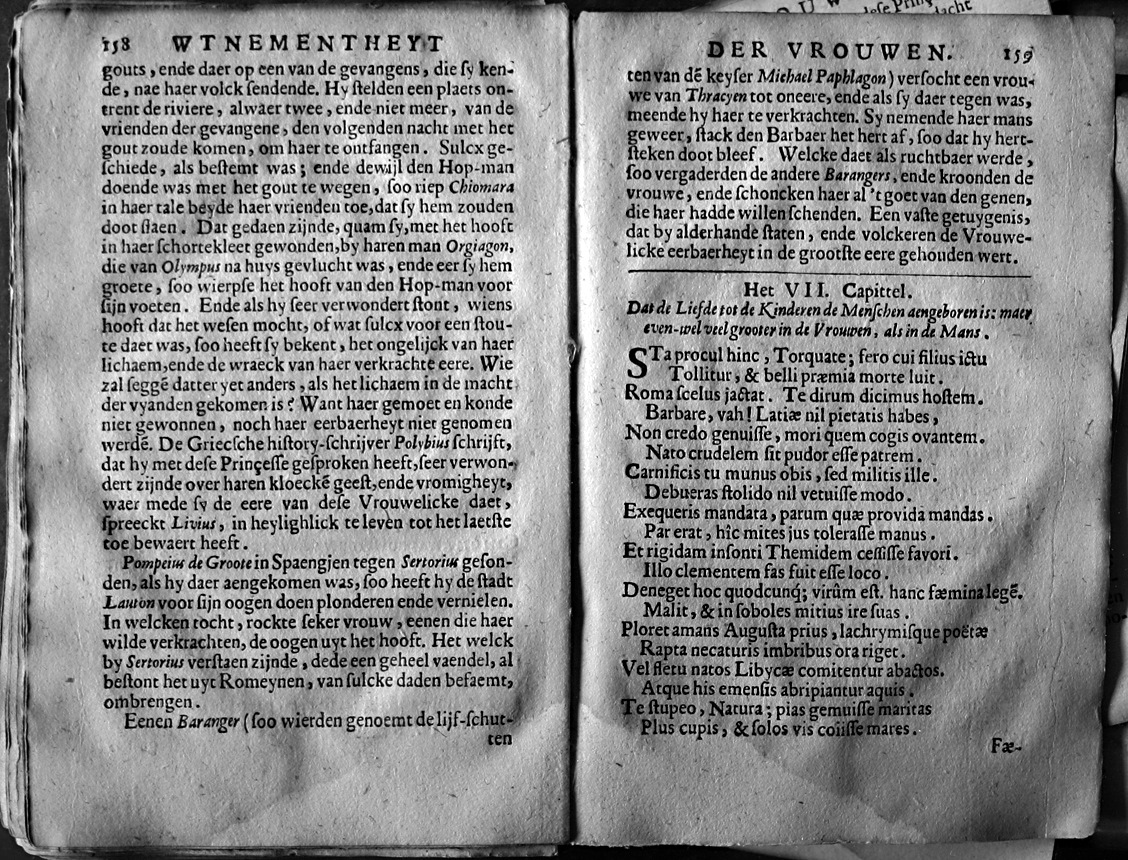 158 WTNEMENTHEYT
gouts, ende daer op een van de gevangens, die ſy ken-
de, nae haer volck ſendende. Hy ſtelden een plaets on-
trent de riviere, alwaer twee, ende niet meer, van de
vrienden der gevangene, den volgenden nacht met het
gout zoude komen, om haer te ontfangen. Sulcx ge-
ſchiede, als beſtemt was; ende dewijl den Hop-man
doende was met het gout te wegen, ſoo riep Chiomara
in haer tale beyde haer vrienden toe, dat ſy hem zouden
doot ſlaen. Dat gedaen zijnde, quam ſy, met het hooft
in haer ſchortekleet gewonden, by haren man Orgiagon,
die van Olympus na huys gevlucht was, ende eer ſy hem
groete, ſoo wierpſe het hooft van den Hop-man voor
ſijn voeten. Ende als hy ſeer verwondert ſtont, wiens
hooft dat het weſen mocht, of wat ſulcx voor een ſtou-
te daet was, ſoo heeft ſy bekent, het ongelijck van haer
lichaem, ende de wraeck van haer verkrachte eere. Wie
zal ſeggē datter yet anders, als het lichaem in de macht
der vyanden gekomen is? Want haer gemoet en konde
niet gewonnen, noch haer eerbaerheyt niet genomen
werdē. De Griecſche hiſtory-ſchrijver Polybius ſchrijft,
dat hy met deſe Prinçeſſe geſproken heeft, ſeer verwon-
dert zijnde over haren kloeckē geeſt, ende vromigheyt,
waer mede ſy de eere van deſe Vrouwelicke daet,
ſpreeckt Livius, in heylighlick te leven tot het laetſte
toe bewaert heeft.
Pompeius de Groote in Spaengjen tegen Sertorius geſon-
den, als hy daer aengekomen was, ſoo heeft hy de ſtadt
Lauton voor ſijn oogen doen plonderen ende vernielen.
In welcken tocht, rockte ſeker vrouw, eenen die haer
wilde verkrachten, de oogen uyt het hooft. Het welck
by Sertorius verſtaen zijnde, dede een geheel vaendel, al
beſtont het uyt Romeynen, van ſulcke daden befaemt,
ombrengen.
Eenen Baranger (ſoo wierden genoemt de lijf-ſchut-
ten
DER VROUWEN. 159
ten van dē keyſer Michael Paphlagon) verſocht een vrou-
we van Thracyen tot oneere, ende als ſy daer tegen was,
meende hy haer te verkrachten. Sy nemende haer mans
geweer, ſtack den Barbaer het hert af, ſoo dat hy hert-
ſteken doot bleef. Welcke daet als ruchtbaer werde,
ſoo vergaderden de andere Barangers, ende kroonden de
vrouwe, ende ſchoncken haer al 't goet van den genen,
die haer hadde willen ſchenden. Een vaſte getuygenis,
dat by alderhande ſtaten, ende volckeren de Vrouwe-
licke eerbaerheyt in de grootſte eere gehouden wert.
Het VII. Capittel.
Dat de Liefde tot de Kinderen de Menſchen aengeboren is: maer
even-wel veel grooter in de Vrouwen, als in de Mans.
STa procul hinc, Torquate; fero cui filius ictu
Tollitur, & belli præmia morte luit.
Roma ſcelus jactat. Te dirum dicimus hoſtem.
Barbare, vah! Latiæ nil pietatis habes,
Non credo genuiſſe, mori quem cogis ovantem.
Nato crudelem ſit pudor eſſe patrem.
Carnificis tu munus obis, ſed militis ille.
Debueras ſtolido nil vetuiſſe modo.
Exequeris mandata, parum quæ provida mandas.
Par erat, hîc mites jus toleraſſe manus.
Et rigidam inſonti Themidem ceſſiſſe favori.
Illo clementem fas fuit eſſe loco.
Deneget hoc quodcunq́; virûm eſt. hanc fæmina legē.
Malit, & in ſoboles mitius ire ſuas.
Ploret amans Auguſta prius, lachrymiſque poëtæ
Rapta necaturis imbribus ora riget.
Vel fletu natos Libycæ comitentur abactos.
Atque his emenſis abripiantur aquis.
Te ſtupeo, Natura; pias gemuiſſe maritas
Plus cupis, & ſolos vis coiiſſe mares.
Fæ-